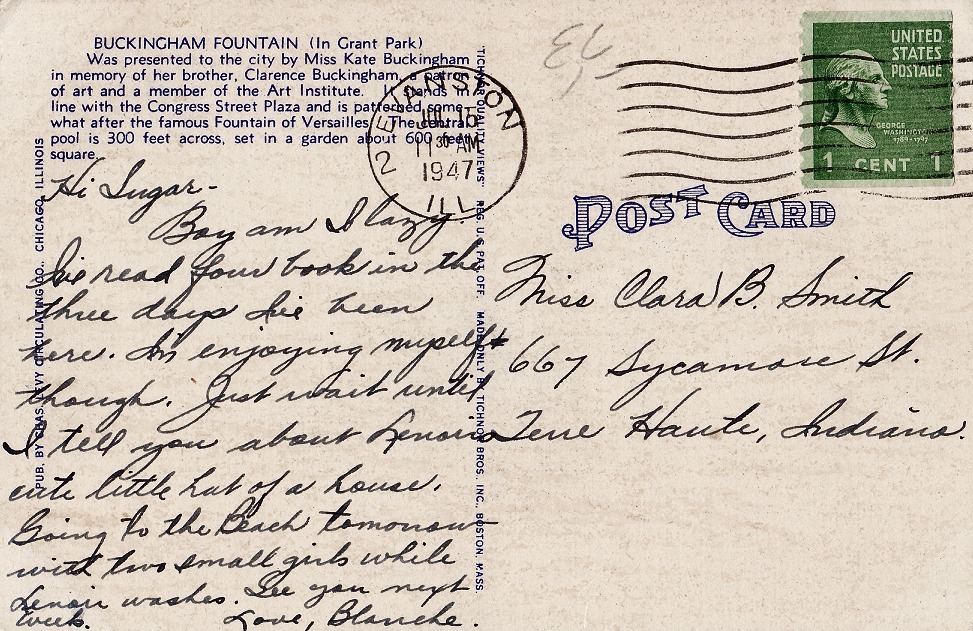 BUCKINGHAM FOUNTAIN (In Grant Park)
Was presented to the city by Miss Kate Buckingham
in memory of her brother, Clarence Buckingham, a patron
of art and a member of the Art Institute. It stands in
line with the Congress Street Plaza and is patterned some-
what after the famous Fountain of Versailles. The central
pool is 300 feet across, set in a garden about 600 feet
square.
PUB. BY CHAS. LEVY CIRCULATING CO., CHICAGO, ILLINOIS
Hi Sugar-
Boy am I lazy.
I've read four book in the
three days I've been
here. I'm enjoying myself
though. Just wait until
I tell you about Lenoris
cute little hut of a house.
Going to the Beach tomorrow
with two small girls while
Lenori washes. See you next
week. Love, Blanche.
TICHNOR QUALITY VIEWS" REG. U.S. PAT. OFF. MADE ONLY BY TICHNOR BROS. INC., BOSTON, MASS.
EVANSTON
2
JUL 15
11 30 AM
1947
ILL.
UNITED
STATES
POSTAGE
GEORGE
WASHINGTON
1789-1797
1 CENT 1
POST CARD
Miss Clara B. Smith
667 Sycamore St.
Terre Haute, Indiana.